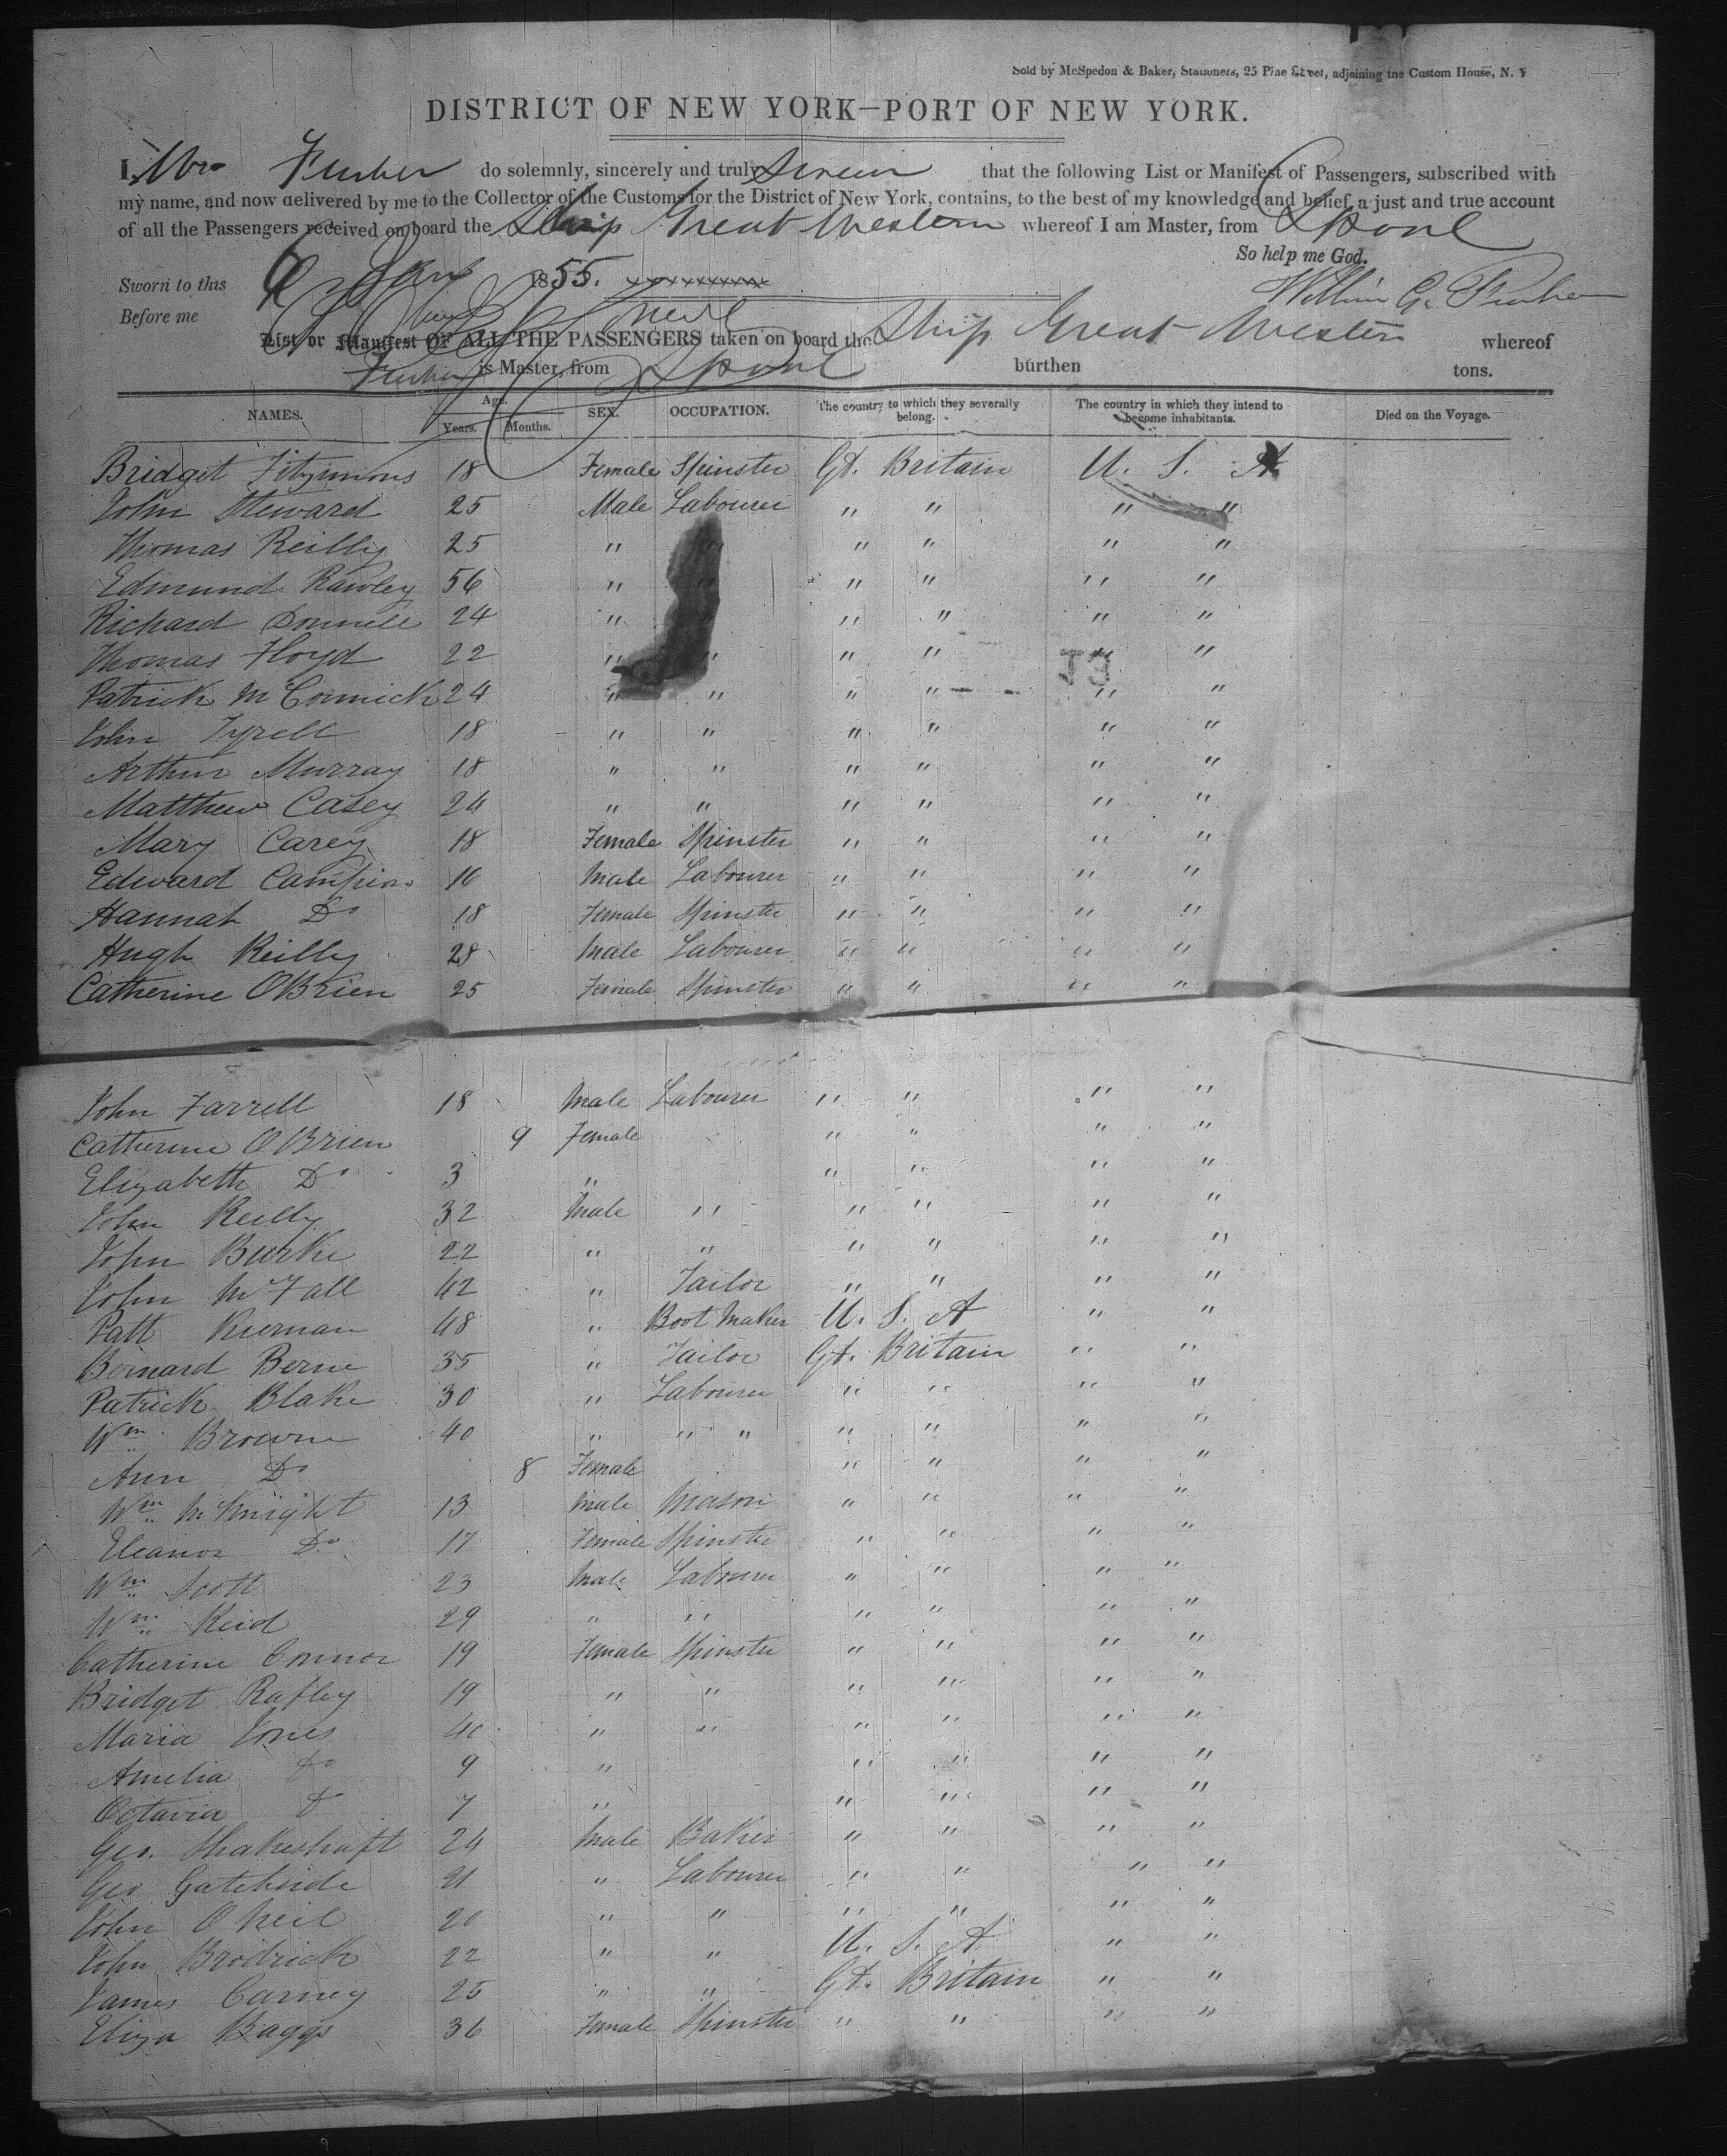 Sold by McSpedon & Baker, Stationers, 25 Pine Street, adjoining the Custom House, N. Y
DISTRICT OF NEW YORK—PORT OF NEW YORK.
I, Wm Furber do solemnly, sincerely and truly swear that the following List or Manifest of Passengers, subscribed with
my name, and now delivered by me to the Collector of the Customs for the District of New York, contains, to the best of my knowledge and belief, a just and true account
of all the Passengers received on board the Ship Great Western whereof I am Master, from LPool
So help me God.
Sworn to this 6 Jany 1855.
William G. Furber
Before me
List or Manifest OF ALL THE PASSENGERS taken on board the Ship Great Western whereof
Furber is Master, from LPool burthen tons.
NAMES. Age. Years. Months. SEX. OCCUPATION. The country to which they severally belong. The country in which they intend to become inhabitants. Died on the Voyage.
Bridget Fitzsimons 18 Female Spinster Gt. Britain U. S. A
John Steward 25 Male Labourer " " " "
Thomas Reilly 25 " " " " " "
Edmund Rawley 56 " " " " " "
Richard Donnell 24 " " " " " "
Thomas Floyd 22 " " " " " "
Patrick McCormick 24 " " " " " "
John Tyrell 18 " " " " " "
Arthur Murray 18 " " " " " "
Matthew Casey 24 " " " " " "
Mary Carey 18 Female Spinster " " " "
Edward Campion 16 Male Labourer " " " "
Hannah Do 18 Female Spinster " " " "
Hugh Reilly 28 Male Labourer " " " "
Catherine OBrien 25 Female Spinster " " " "
John Farrell 18 Male Labourer " " " "
Catherine OBrien 9 Female " " " "
Elizabeth Do 3 " " " " "
John Reilly 32 Male " " " " "
John Burke 22 " " " " " "
John McFall 42 " Tailor " " " "
Patt Kiernan 48 " Boot Maker U. S. A " "
Bernard Berne 35 " Tailor Gt. Britain " "
Patrick Blake 30 " Labourer " " " "
Wm Browne 40 " " " " " " "
Ann Do 8 Female " " " "
Wm McKnight 13 Male Mason " " " "
Eleanor Do 17 Female Spinster " " " "
Wm Scott 23 Male Labourer " " " "
Wm Reid 29 " " " " " "
Catherine Connor 19 Female Spinster " " " "
Bridget Rafley 19 " " " " " "
Maria Jones 40 " " " " " "
Amelia Do 9 " " " " "
Octavia Do 7 " " " " "
Geo. Shakeshaft 24 Male Baker " " " "
Geo Gatehside 21 " Labourer " " " "
John O Neil 20 " " " " " "
John Brodrick 22 " " U. S. A " "
James Carney 25 " " Gt. Britain " "
Eliza Baggs 36 Female Spinster " " " "